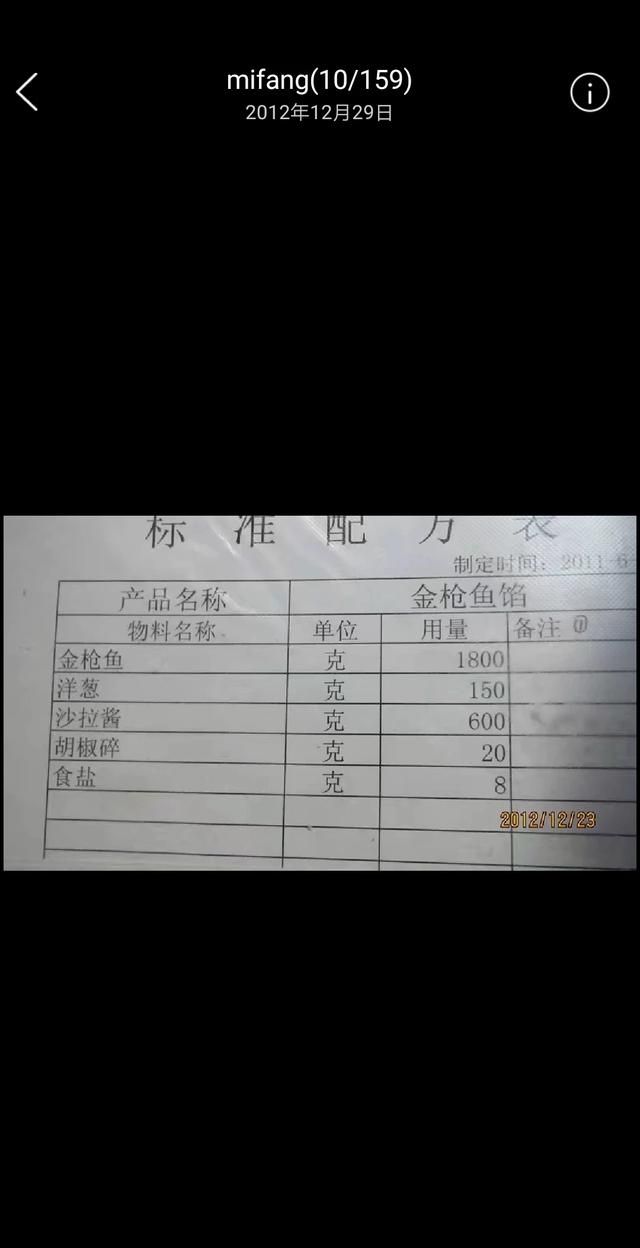 mifang(10/159)
2012年12月29日
标准配方表
制定时间：2011-6
产品名称 金枪鱼馅
物料名称 单位 用量 备注
金枪鱼 克 1800
洋葱 克 150
沙拉酱 克 600
胡椒碎 克 20
食盐 克 8
2012/12/23